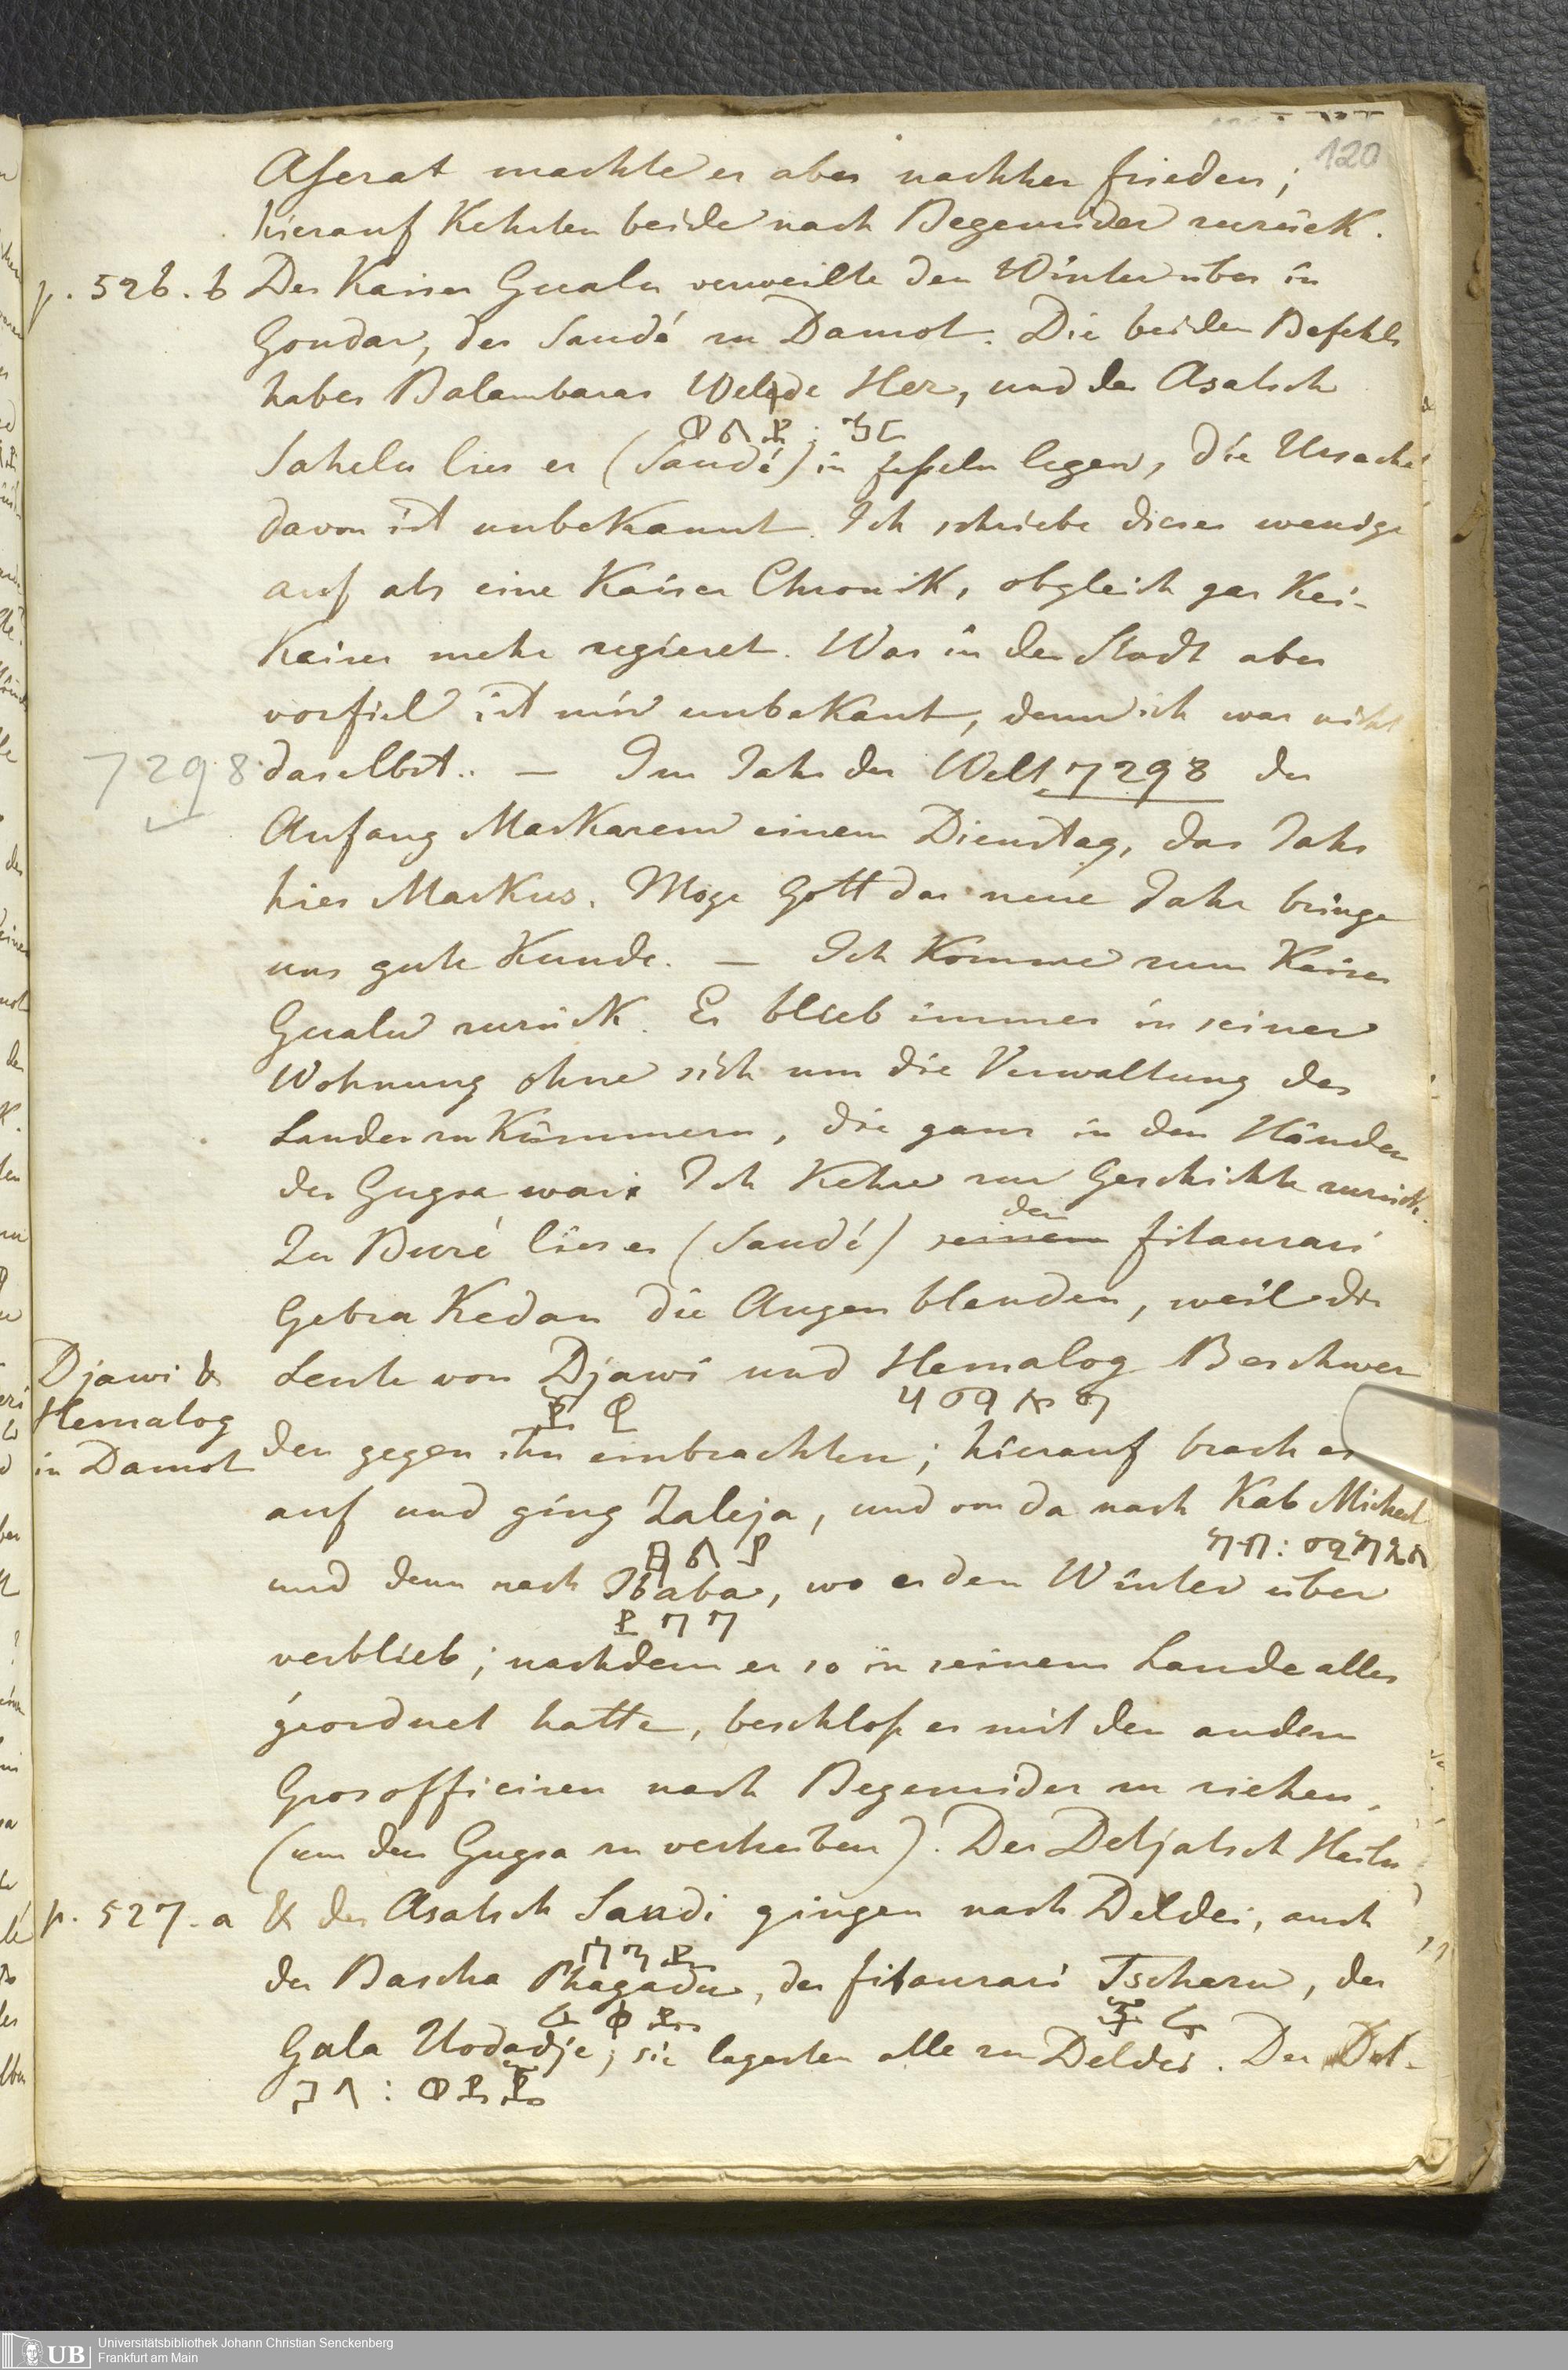 120
Aserat machte er aber nachher frieden;
hierauf Kehrten beide nach Begemider zurück.
p. 526. b Der Kaiser Gualu verweilte den Winter über in
Gondar, der Saudé zu Damot. Die beiden Befehls
haber Balambaras Welede Her, und der Asatsch
ወልደ : ኄር
Sahelu lies er (Saudé) in fesseln legen, die Ursache
davon ist unbekannt. Ich schriebe dieses wenige
auf als eine Kaiser Chronik, obgleich gar Kei-
Kaiser mehr regieret. Was in der Stadt aber
vorfiel ist mir unbekant, denn ich war nicht
7298 daselbst. — Im Jahr der Welt 7298 der
Anfang Maskarem einem Dienstag, das Jahr
hies Markus. Möge Gott das neue Jahr bringe
uns gute Kunde. — Ich Komme zum Kaiser
Gualu zurück. Er blieb immer in seiner
Wohnung ohne sich um die Verwaltung des
Landes zu Kümmern, die ganz in den Händen
des Gugsa war. Ich Kehre zur Geschichte zurück.
dem
Zu Buré lies er (Saudé) seinem fitaurari
Gebra Kedan die Augen blenden, weil die
Djawi & Hemalog in Damot
Leute von Djawi und Hemalog Beschwer
ጃዊ ሀማሎግ
den gegen ihn einbrachten; hierauf brach er
auf und ging Zaleja, und von da nach Kab Michael
ዘልያ ካብ : ሚካኤል
und denn nach Ibaba, wo er den Winter über
ይባባ
verblieb; nachdem er so in seinem Lande alles
geordnet hatte, beschloß er mit den andern
Grosofficiren nach Begemider zu ziehen,
(um den Gugsa zu vertreiben). Der Detjatsch Hailu
p. 527. a & der Asatsch Saudi gingen nach Deldei, auch
der Bascha Phagadu, der fitaurari Tscheru, der
Gala Uodadje; sie lagerten alle zu Deldei. Der Det-
Universitätsbibliothek Johann Christian Senckenberg
Frankfurt am Main
UB